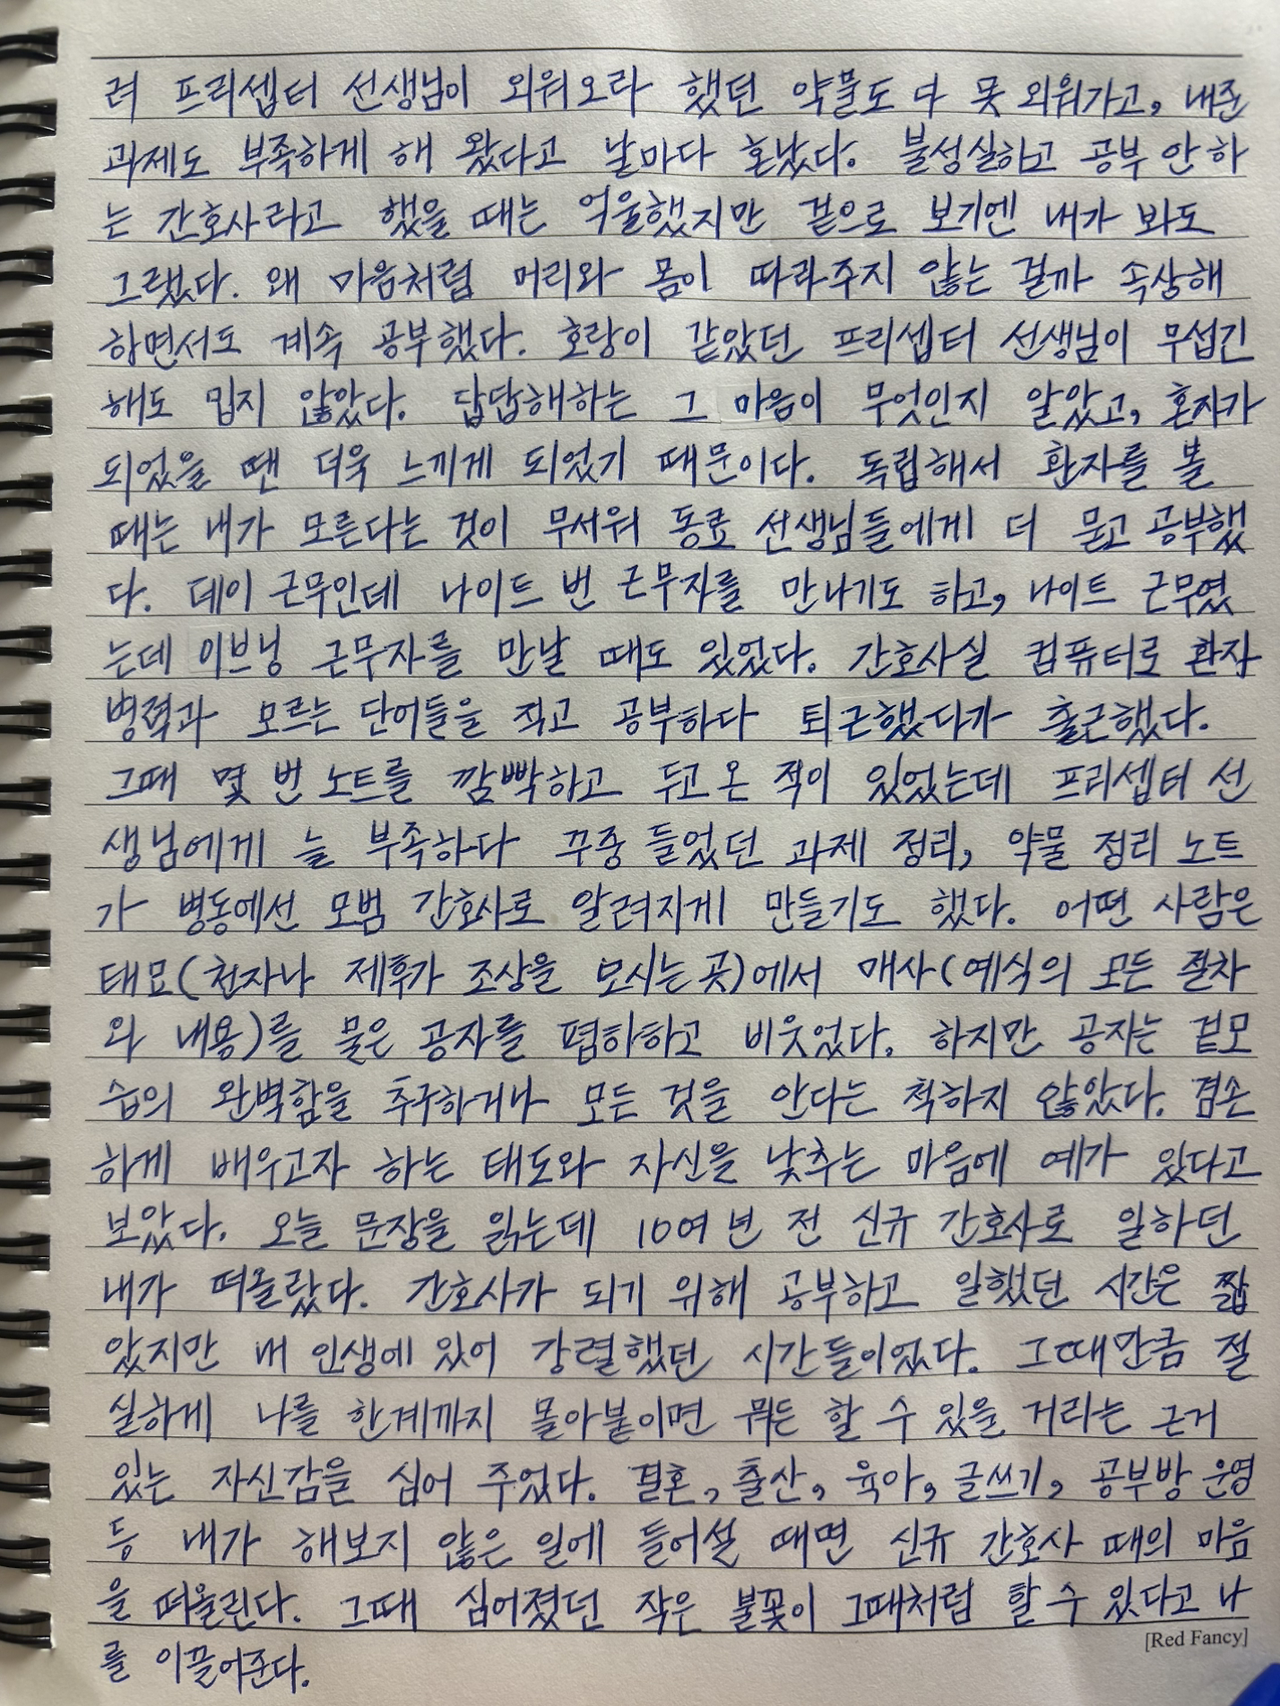 려 프리셉터 선생님이 외워오라 했던 약물도 다 못 외워가고, 내준
과제도 부족하게 해 왔다고 날마다 혼났다. 불성실하고 공부 안 하
는 간호사라고 했을 때는 억울했지만 겉으로 보기엔 내가 봐도
그랬다. 왜 마음처럼 머리와 몸이 따라주지 않는 걸까 속상해
하면서도 계속 공부했다. 호랑이 같았던 프리셉터 선생님이 무섭긴
해도 밉지 않았다. 답답해하는 그 마음이 무엇인지 알았고, 혼자가
되었을 땐 더욱 느끼게 되었기 때문이다. 독립해서 환자를 볼
때는 내가 모른다는 것이 무서워 동료 선생님들에게 더 묻고 공부했
다. 데이 근무인데 나이트 번 근무자를 만나기도 하고, 나이트 근무였
는데 이브닝 근무자를 만날 때도 있었다. 간호사실 컴퓨터로 환자
병력과 모르는 단어들을 적고 공부하다 퇴근했다가 출근했다.
그때 몇 번 노트를 깜빡하고 두고 온 적이 있었는데 프리셉터 선
생님에게 늘 부족하다 꾸중 들었던 과제 정리, 약물 정리 노트
가 병동에선 모범 간호사로 알려지게 만들기도 했다. 어떤 사람은
태묘(천자나 제후가 조상을 모시는 곳)에서 매사(예식의 모든 절차
와 내용)를 물은 공자를 폄하하고 비웃었다. 하지만 공자는 겉모
습의 완벽함을 추구하거나 모든 것을 안다는 척하지 않았다. 겸손
하게 배우고자 하는 태도와 자신을 낮추는 마음에 예가 있다고
보았다. 오늘 문장을 읽는데 10여 년 전 신규 간호사로 일하던
내가 떠올랐다. 간호사가 되기 위해 공부하고 일했던 시간은 짧
았지만 내 인생에 있어 강렬했던 시간들이었다. 그때만큼 절
실하게 나를 한계까지 몰아붙이면 뭐든 할 수 있을 거라는 근거
있는 자신감을 심어 주었다. 결혼, 출산, 육아, 글쓰기, 공부방 운영
등 내가 해보지 않은 일에 들어설 때면 신규 간호사 때의 마음
을 떠올린다. 그때 심어졌던 작은 불꽃이 그때처럼 할 수 있다고 나
를 이끌어준다.
[Red Fancy]